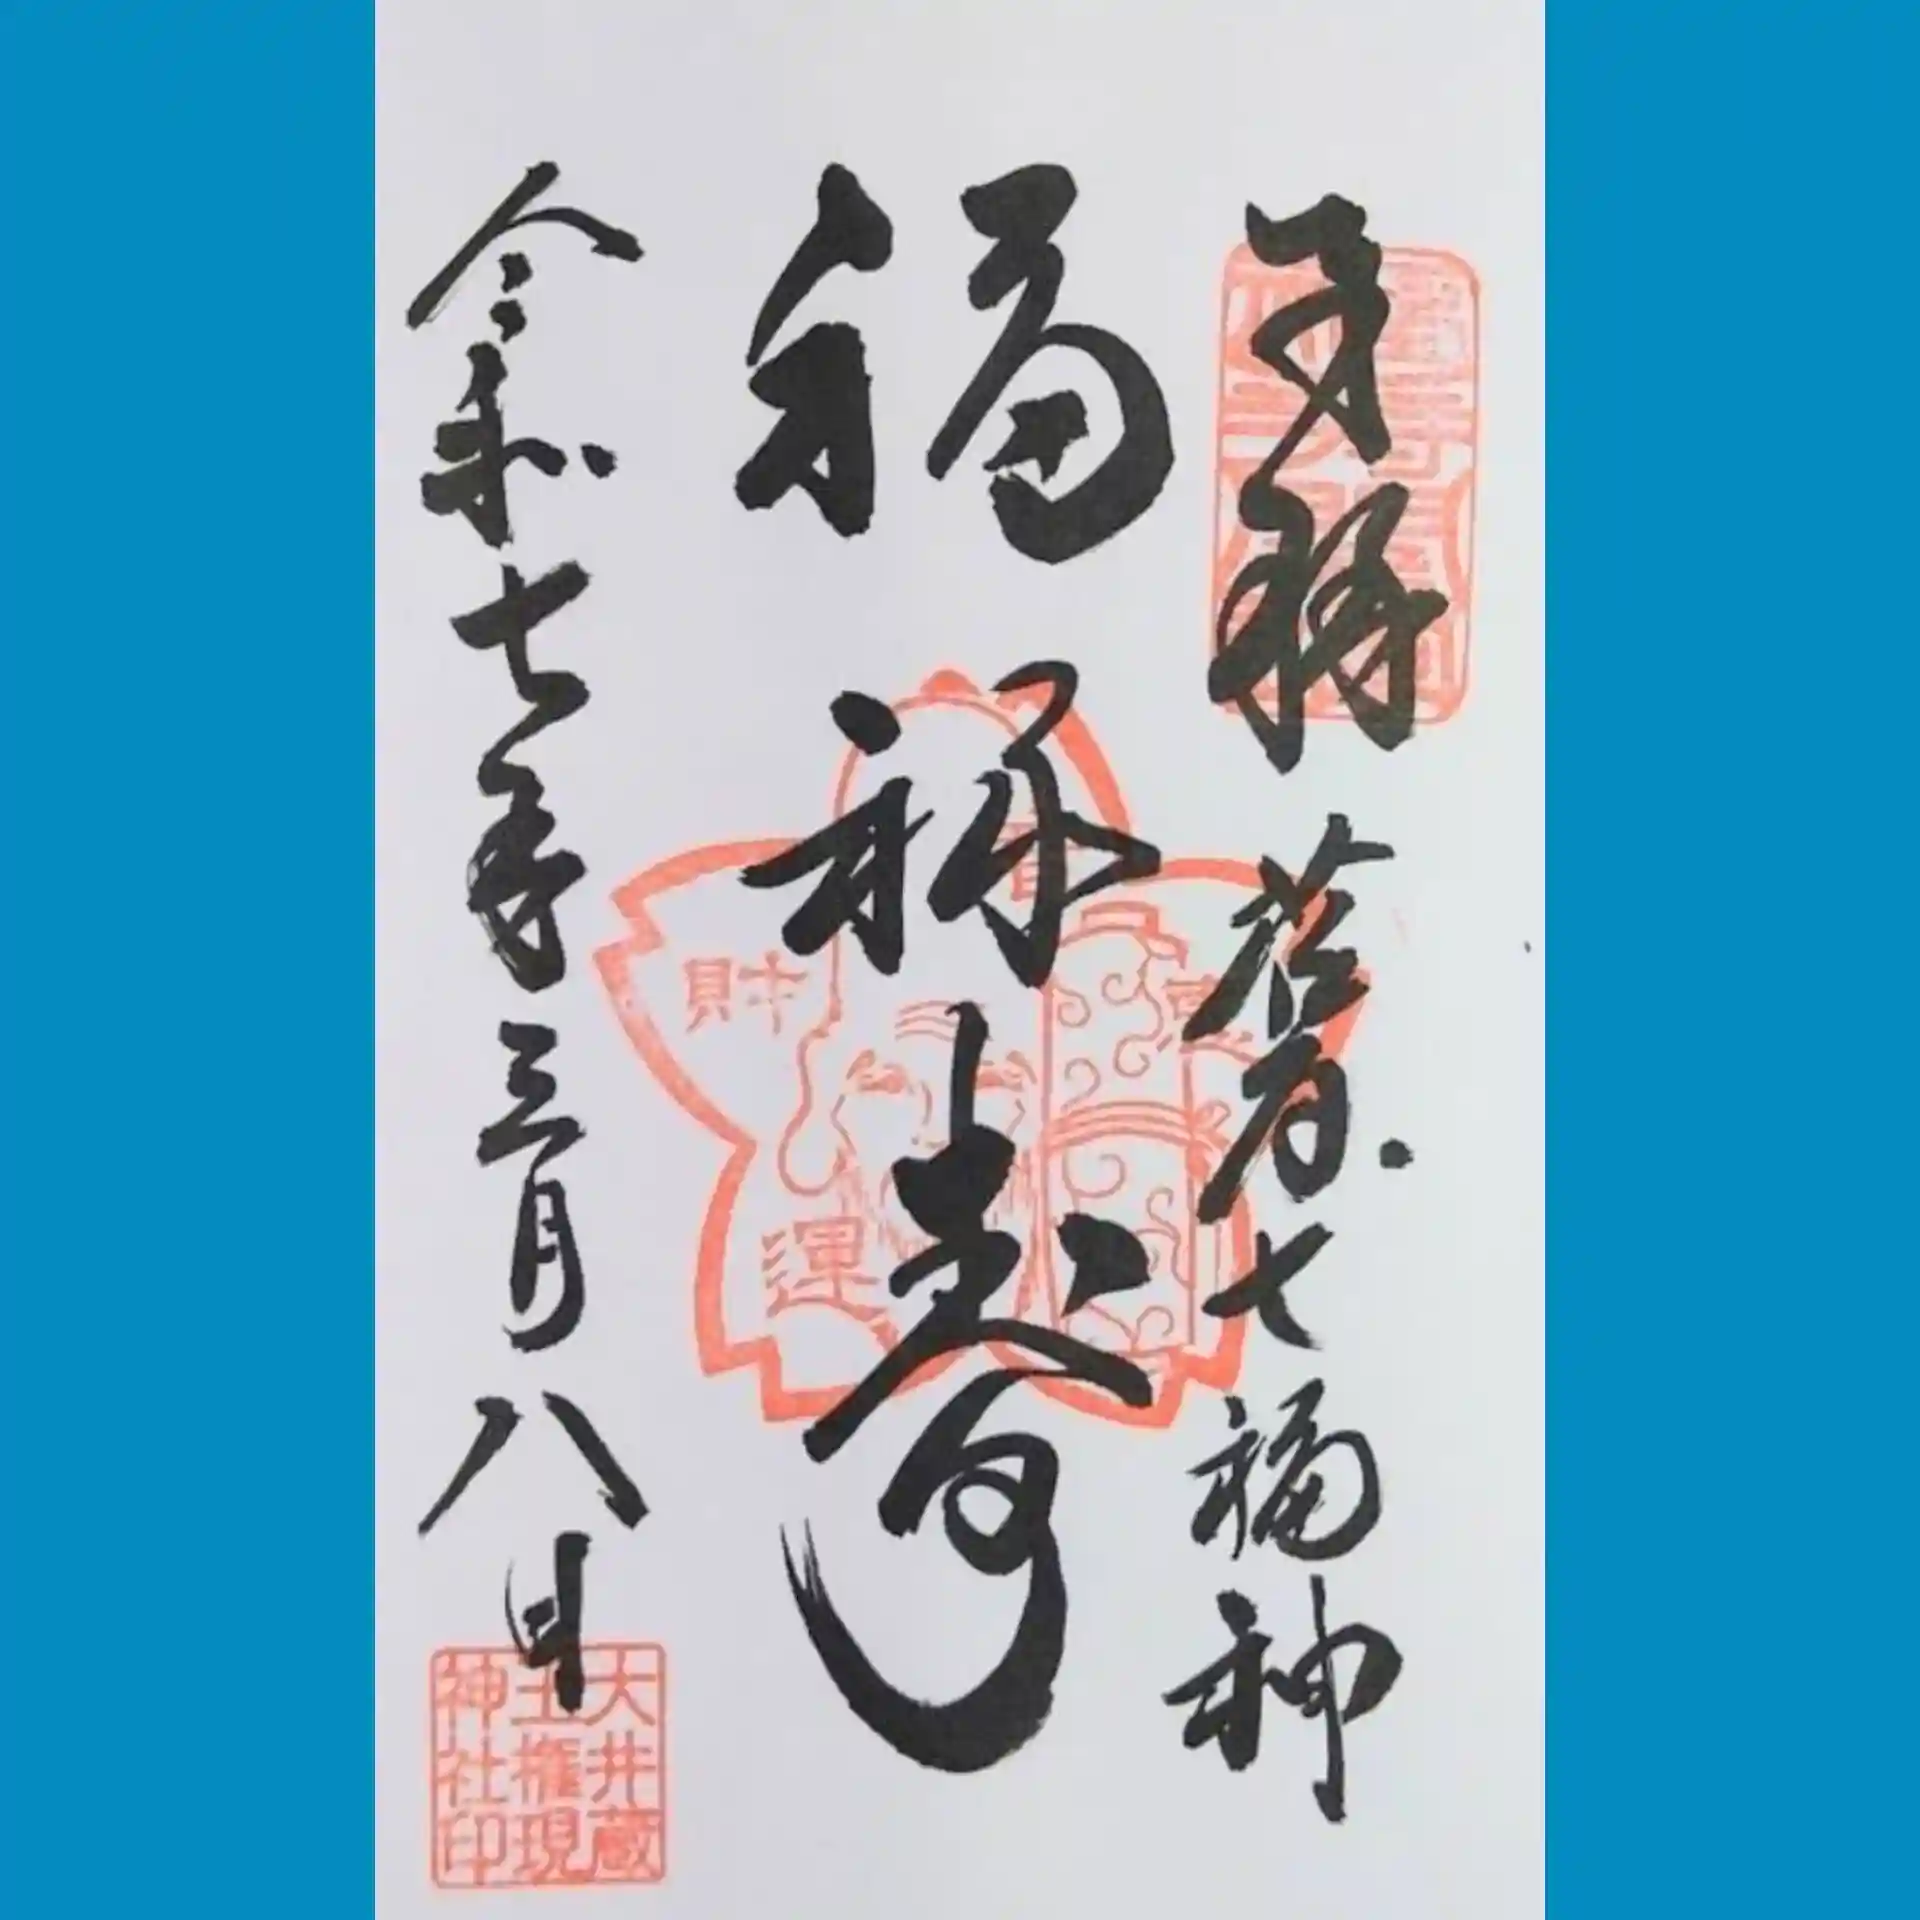 奉拝
荏原七福神
福禄寿
令和七年三月八日
財
運
大井蔵
王権現
神社印